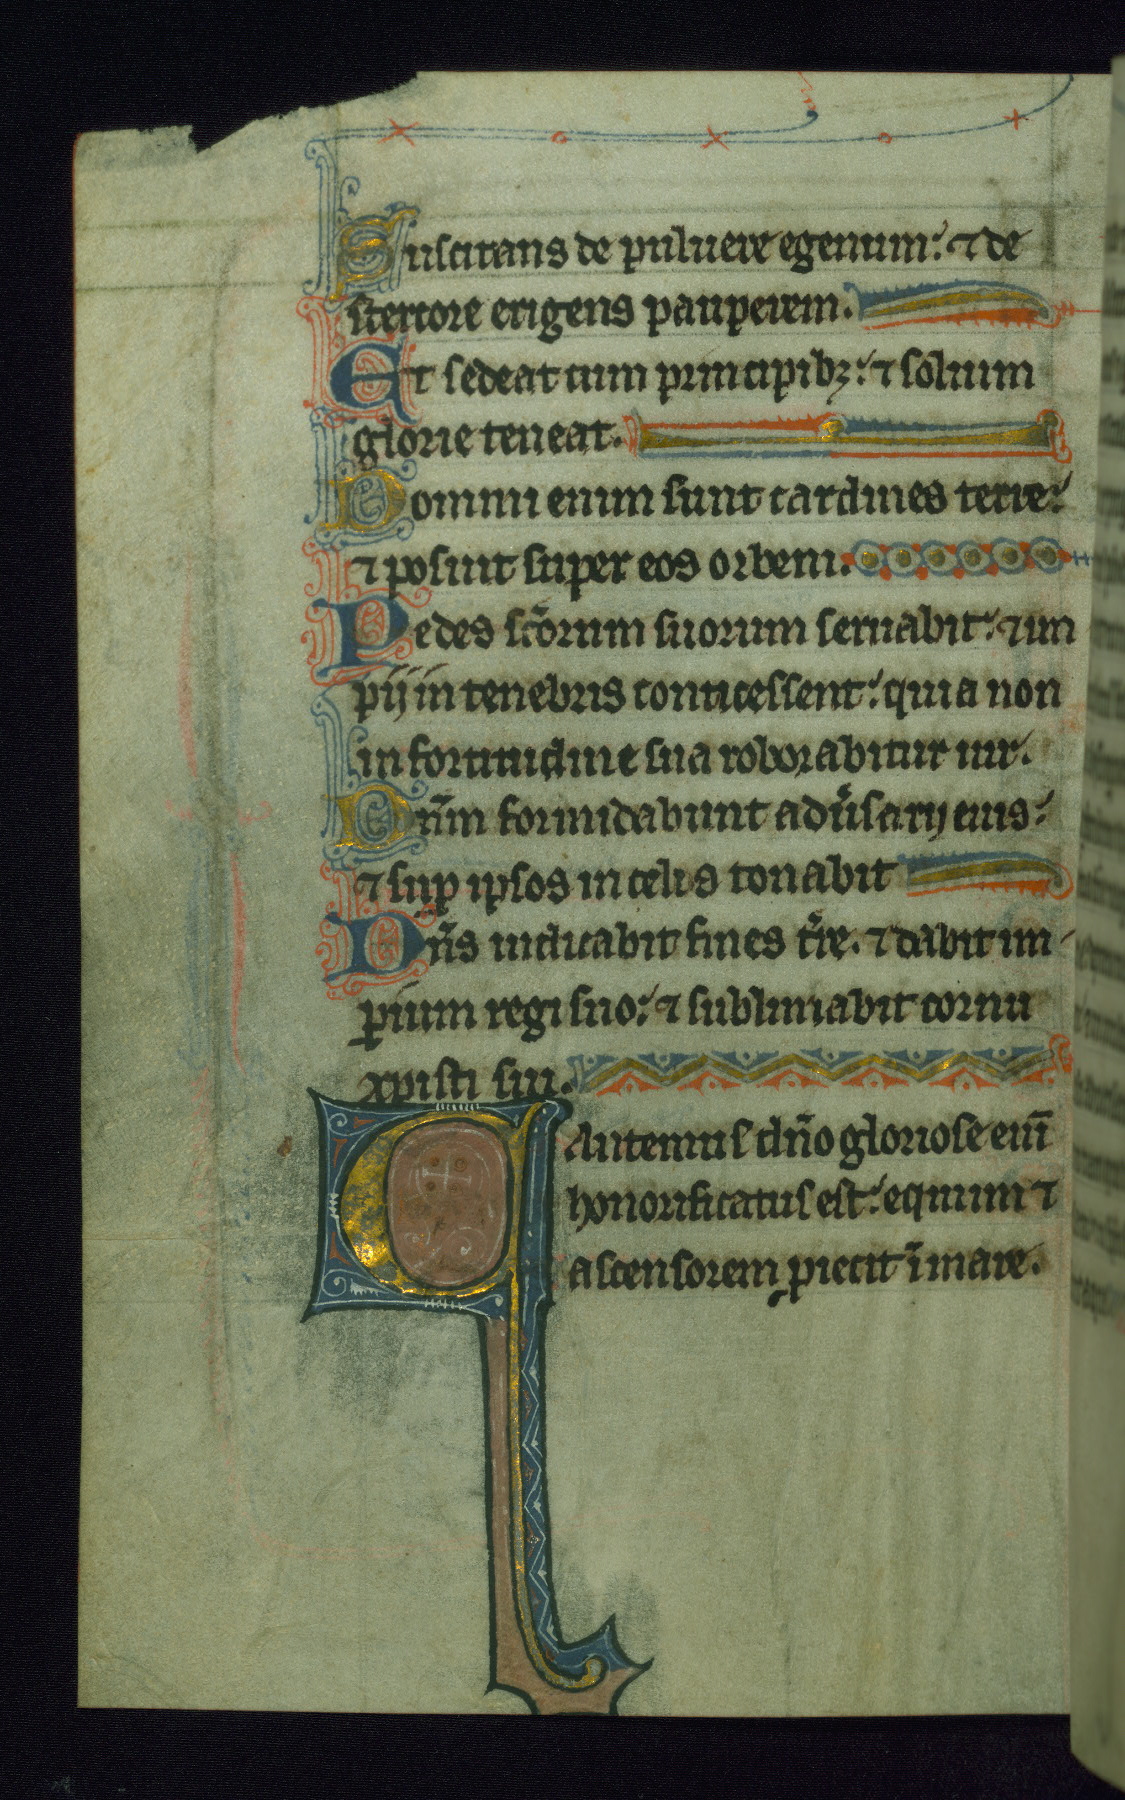 Suscitans de puluere egenum: ⁊ de
stercore erigens pauperem.
Et sedeat cum principibꝫ: ⁊ solium
glorie teneat.
Domini enim sunt cardines terre:
⁊ posuit super eos orbem.
Pedes sc̃orum suorum seruabit: ⁊ im
pij in tenebris conticessent: quia non
in fortitudine sua roborabitur uir.
Dñm formidabunt adũsarij eius:
⁊ suꝑ ipsos in celis tonabit
Dñs iudicabit fines t̃re. ⁊ dabit im
ꝑium regi suo: ⁊ sublimabit cornu
xpisti sui.
Cantemus dño gloriose eni̅
honorificatus est: equum ⁊
ascensorem proiecit ı̅ mare.